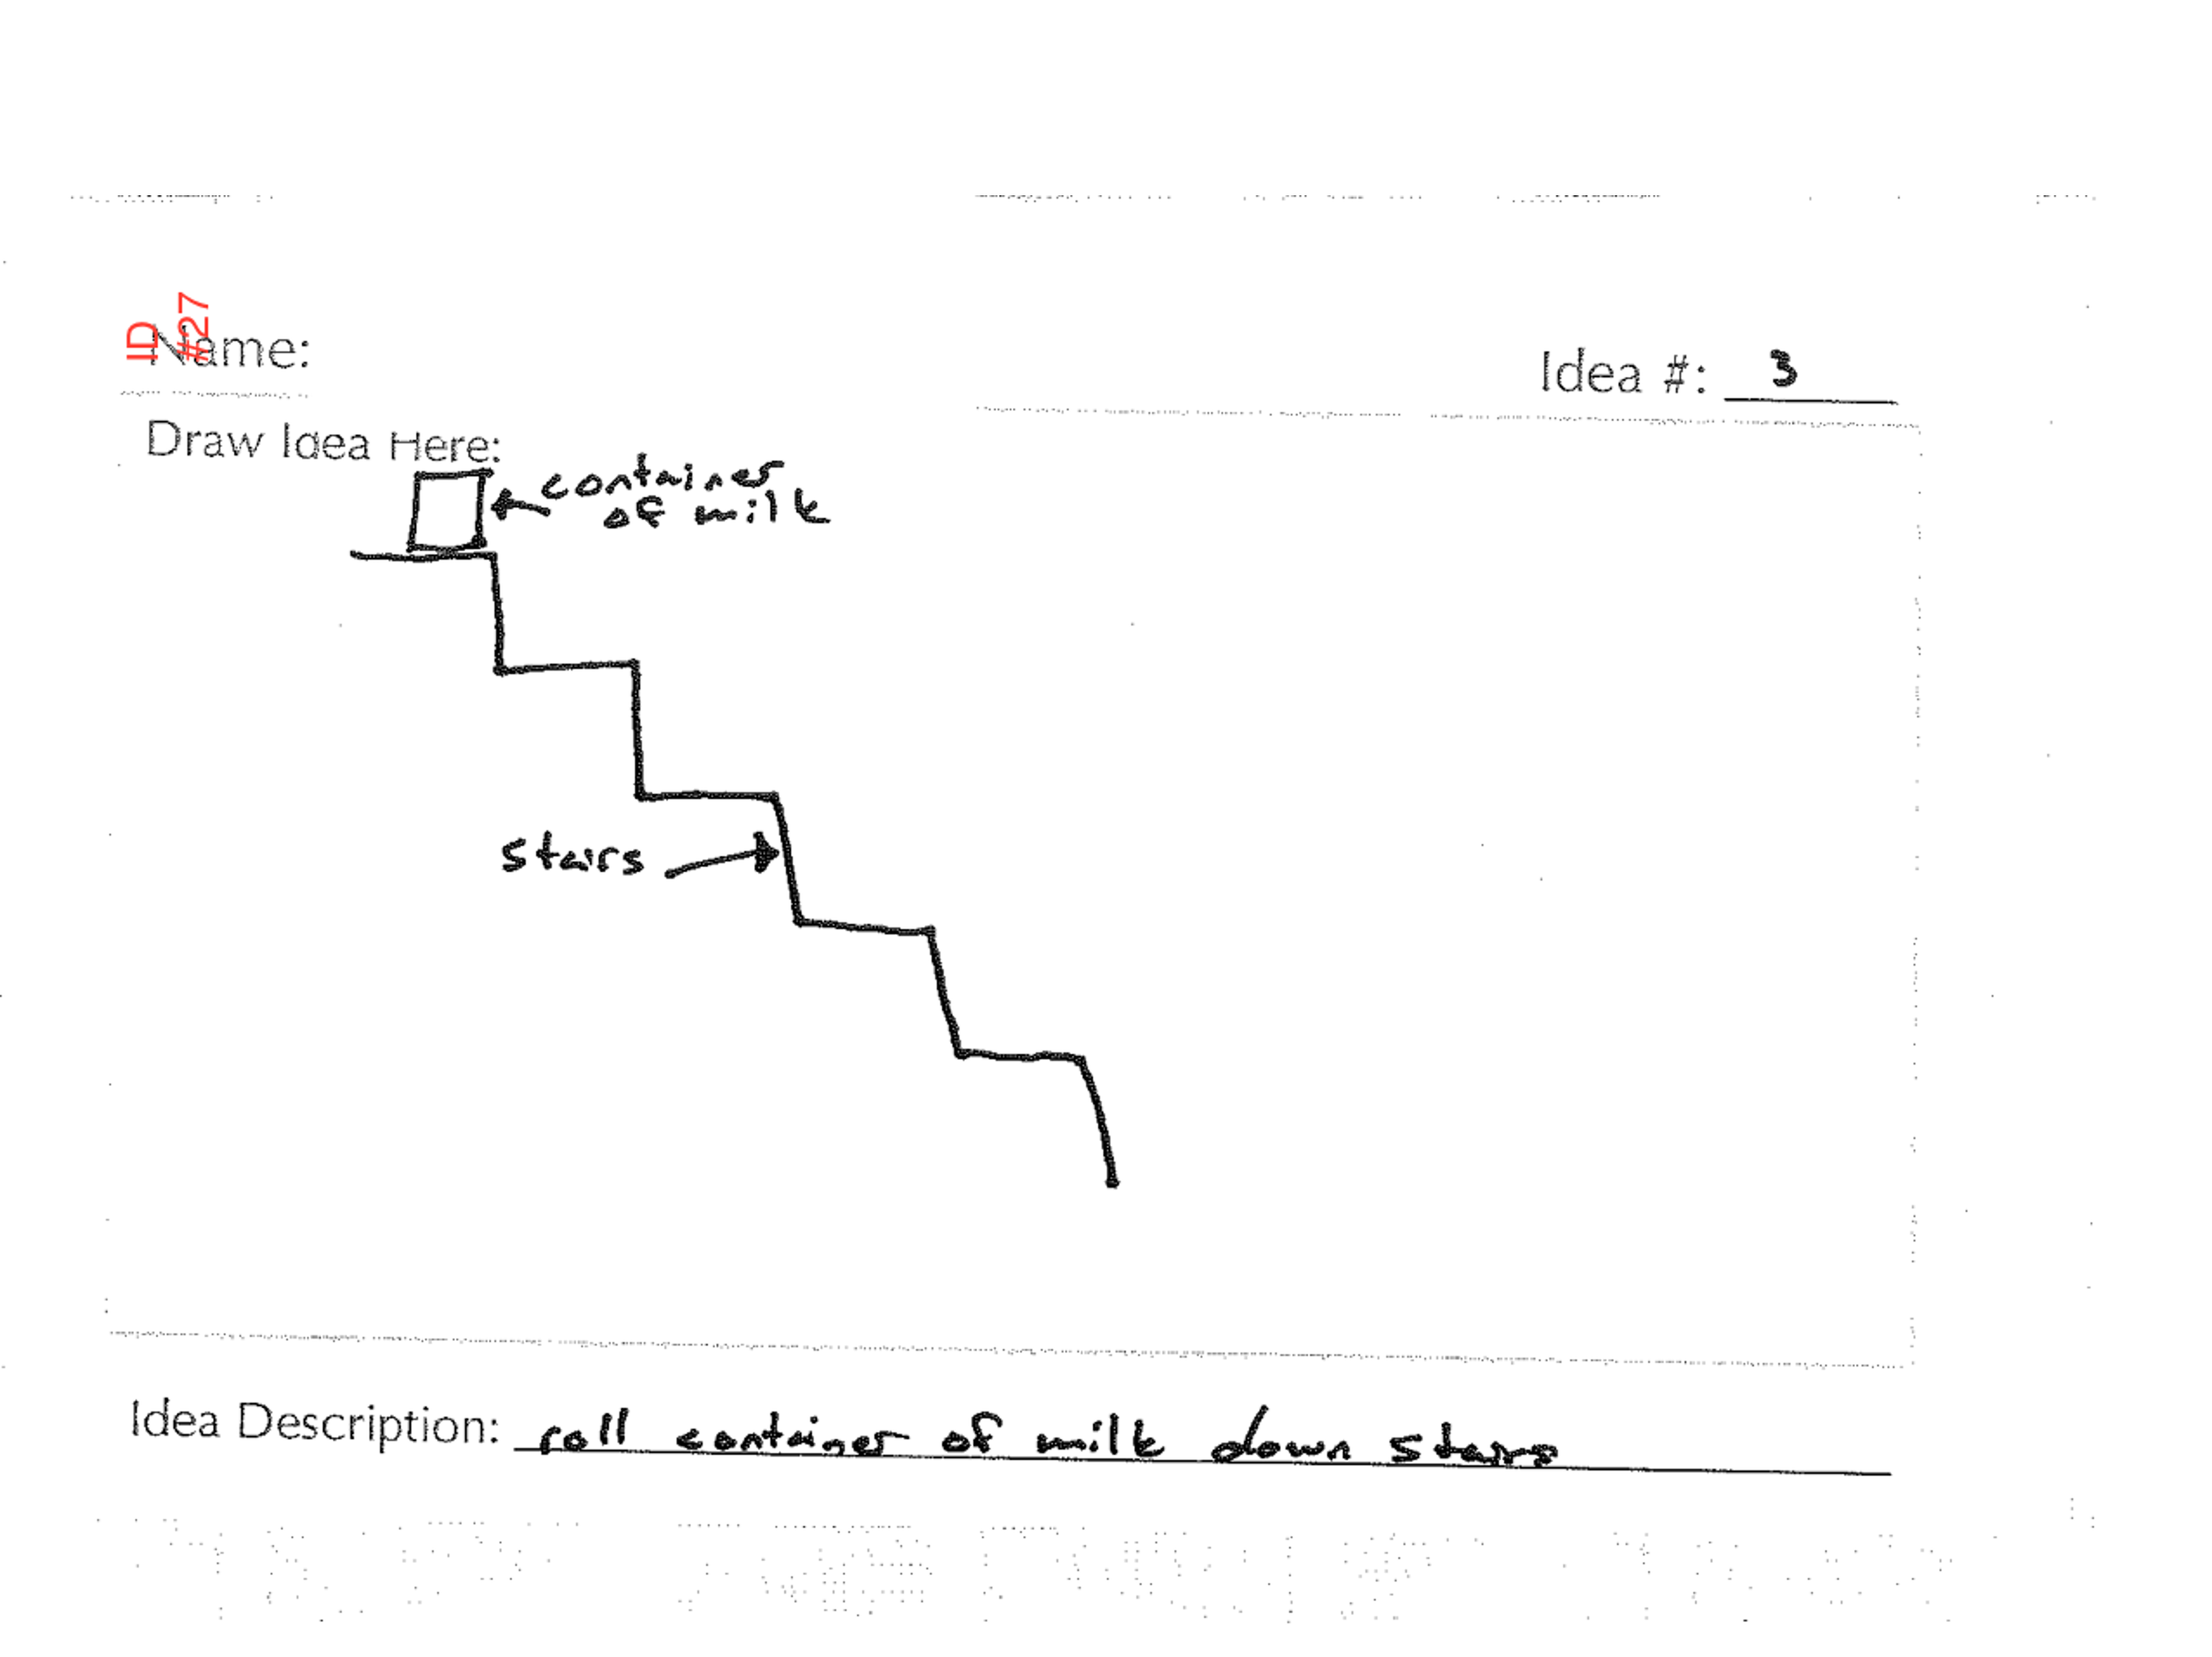 ID
#27
Name:
Idea #: 3
Draw Idea Here:
container
of milk
stairs
Idea Description: roll container of milk down stairs